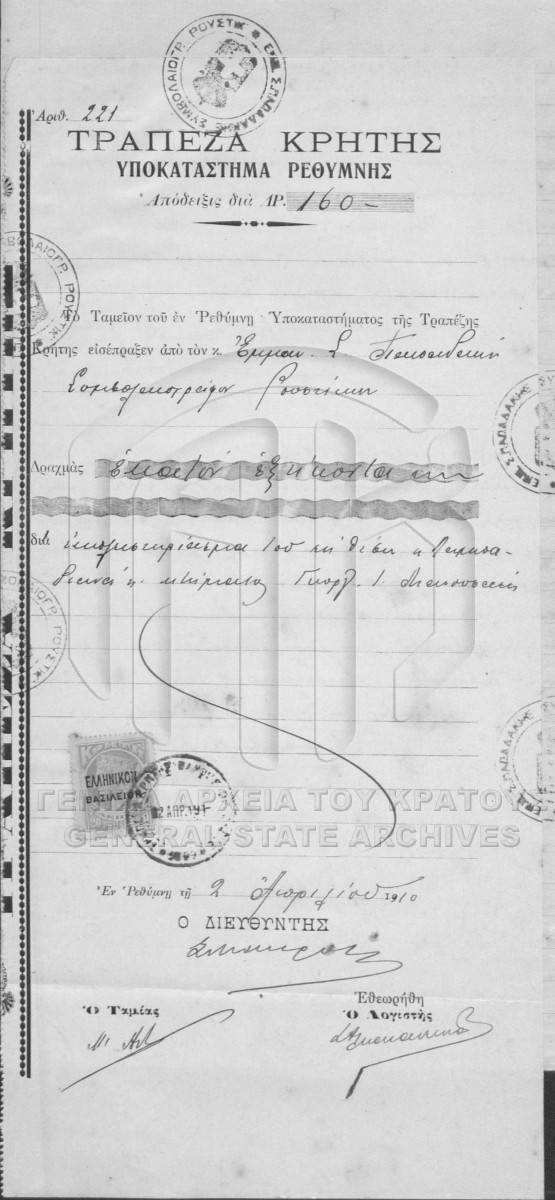 ΕΜΜ. Σ. ΠΑΠΑΔΑΚΗΣ ΣΥΜΒΟΛΑΙΟΓΡ. ΡΟΥΣΤΙΚ.
Ἀριθ. 221
ΤΡΑΠΕΖΑ ΚΡΗΤΗΣ
ΥΠΟΚΑΤΑΣΤΗΜΑ ΡΕΘΥΜΝΗΣ
Ἀπόδειξις διὰ ΔΡ. 160-
Τὸ Ταμεῖον τοῦ ἐν Ῥεθύμνῃ Ὑποκαταστήματος τῆς Τραπέζης
Κρήτης εἰσέπραξεν ἀπὸ τὸν κ. Ἐμμαν. Σ. Παπαδάκην
Συμβολαιογράφον Ρουστίκων
Δραχμὰς ἑκατὸν ἑξήκοντα
διὰ
Γεωργ. Ι.
ΚΡΗΤΗ
ΕΛΛΗΝΙΚΟΝ
ΒΑΣΙΛΕΙΟΝ
2 ΑΠΡ. 191
ΓΕΝΙΚΑ ΑΡΧΕΙΑ ΤΟΥ ΚΡΑΤΟΥ
GENERAL STATE ARCHIVES
Ἐν Ῥεθύμνῃ τῇ 2 Ἀπριλίου 1910
Ο ΔΙΕΥΘΥΝΤΗΣ
Ἐθεωρήθη
Ὁ Ταμίας Ὁ Λογιστὴς